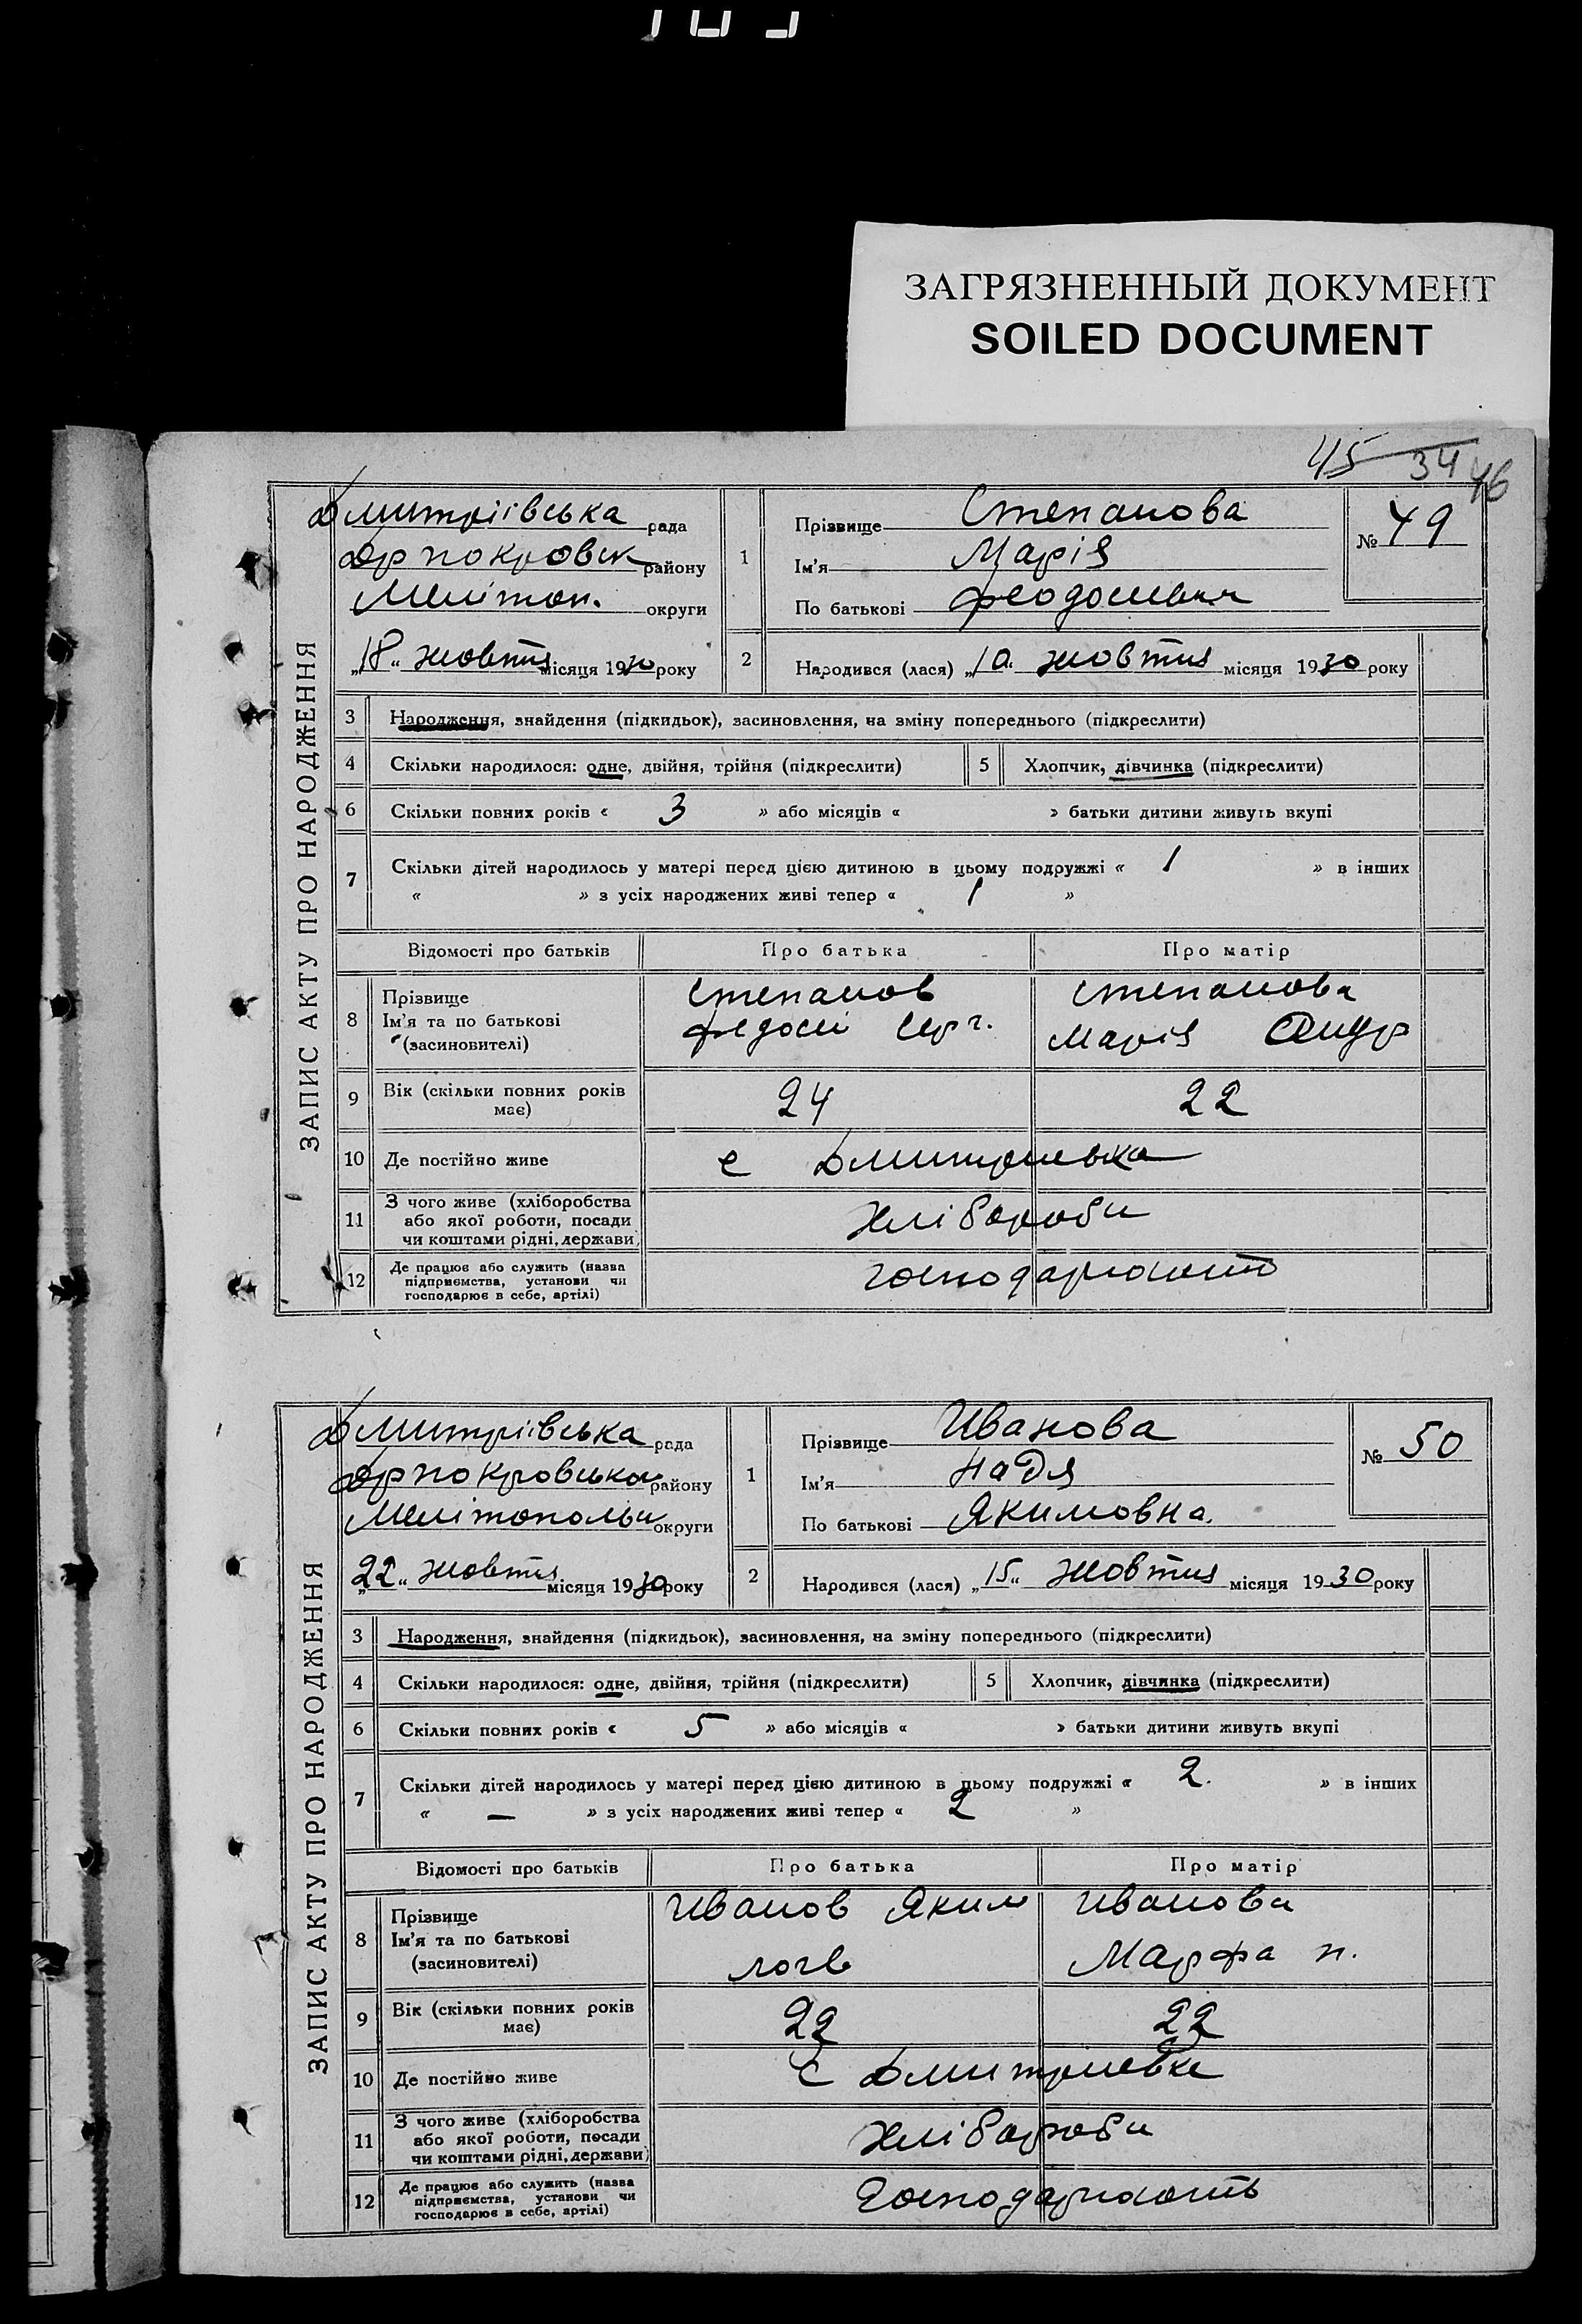 ЗАГРЯЗНЕННЫЙ ДОКУМЕНТ
SOILED DOCUMENT
45 34 46
ЗАПИС АКТУ ПРО НАРОДЖЕННЯ
Дмитріівська рада
Дрпокровск району
Мелітоп. округи
„18“ жовтня місяця 1930 року
1 Прізвище Степанова
Ім'я Марія
По батькові
№ 49
2 Народився (лася) „10“ жовтня місяця 1930 року
3 Народження, знайдення (підкидьок), засиновлення, на зміну попереднього (підкреслити)
4 Скільки народилося: одне, двійня, трійня (підкреслити) 5 Хлопчик, дівчинка (підкреслити)
6 Скільки повних років « 3 » або місяців « » батьки дитини живуть вкупі
7 Скільки дітей народилось у матері перед цією дитиною в цьому подружжі « 1 » в інших
« » з усіх народжених живі тепер « 1 »
Відомості про батьків Про батька Про матір
8 Прізвище Степанов Степанова
Ім'я та по батькові Федосій Серг. Марія Андр
(засиновителі)
9 Вік (скільки повних років має) 24 22
10 Де постійно живе с Дмитриевка
11 З чого живе (хліборобства
або якої роботи, посади
чи коштами рідні, держави) хлібороби
12 Де працює або служить (назва
підприємства, установи чи
господарює в себе, артілі)
ЗАПИС АКТУ ПРО НАРОДЖЕННЯ
Дмитріівська рада
Дрпокровськом району
Мелітопольськ округи
„22“ жовтня місяця 1930 року
1 Прізвище Иванова
Ім'я Надя
По батькові Якимовна.
№ 50
2 Народився (лася) „15“ жовтня місяця 1930 року
3 Народження, знайдення (підкидьок), засиновлення, на зміну попереднього (підкреслити)
4 Скільки народилося: одне, двійня, трійня (підкреслити) 5 Хлопчик, дівчинка (підкреслити)
6 Скільки повних років « 5 » або місяців « » батьки дитини живуть вкупі
7 Скільки дітей народилось у матері перед цією дитиною в цьому подружжі « 2. » в інших
« — » з усіх народжених живі тепер « 2 »
Відомості про батьків Про батька Про матір
8 Прізвище Иванов Яким Иванова
Ім'я та по батькові
(засиновителі) логв Марфа п.
9 Вік (скільки повних років має) 22 22
10 Де постійно живе с Дмитриевке
11 З чого живе (хліборобства
або якої роботи, посади
чи коштами рідні, держави) хлібороби
12 Де працює або служить (назва
підприємства, установи чи
господарює в себе, артілі)